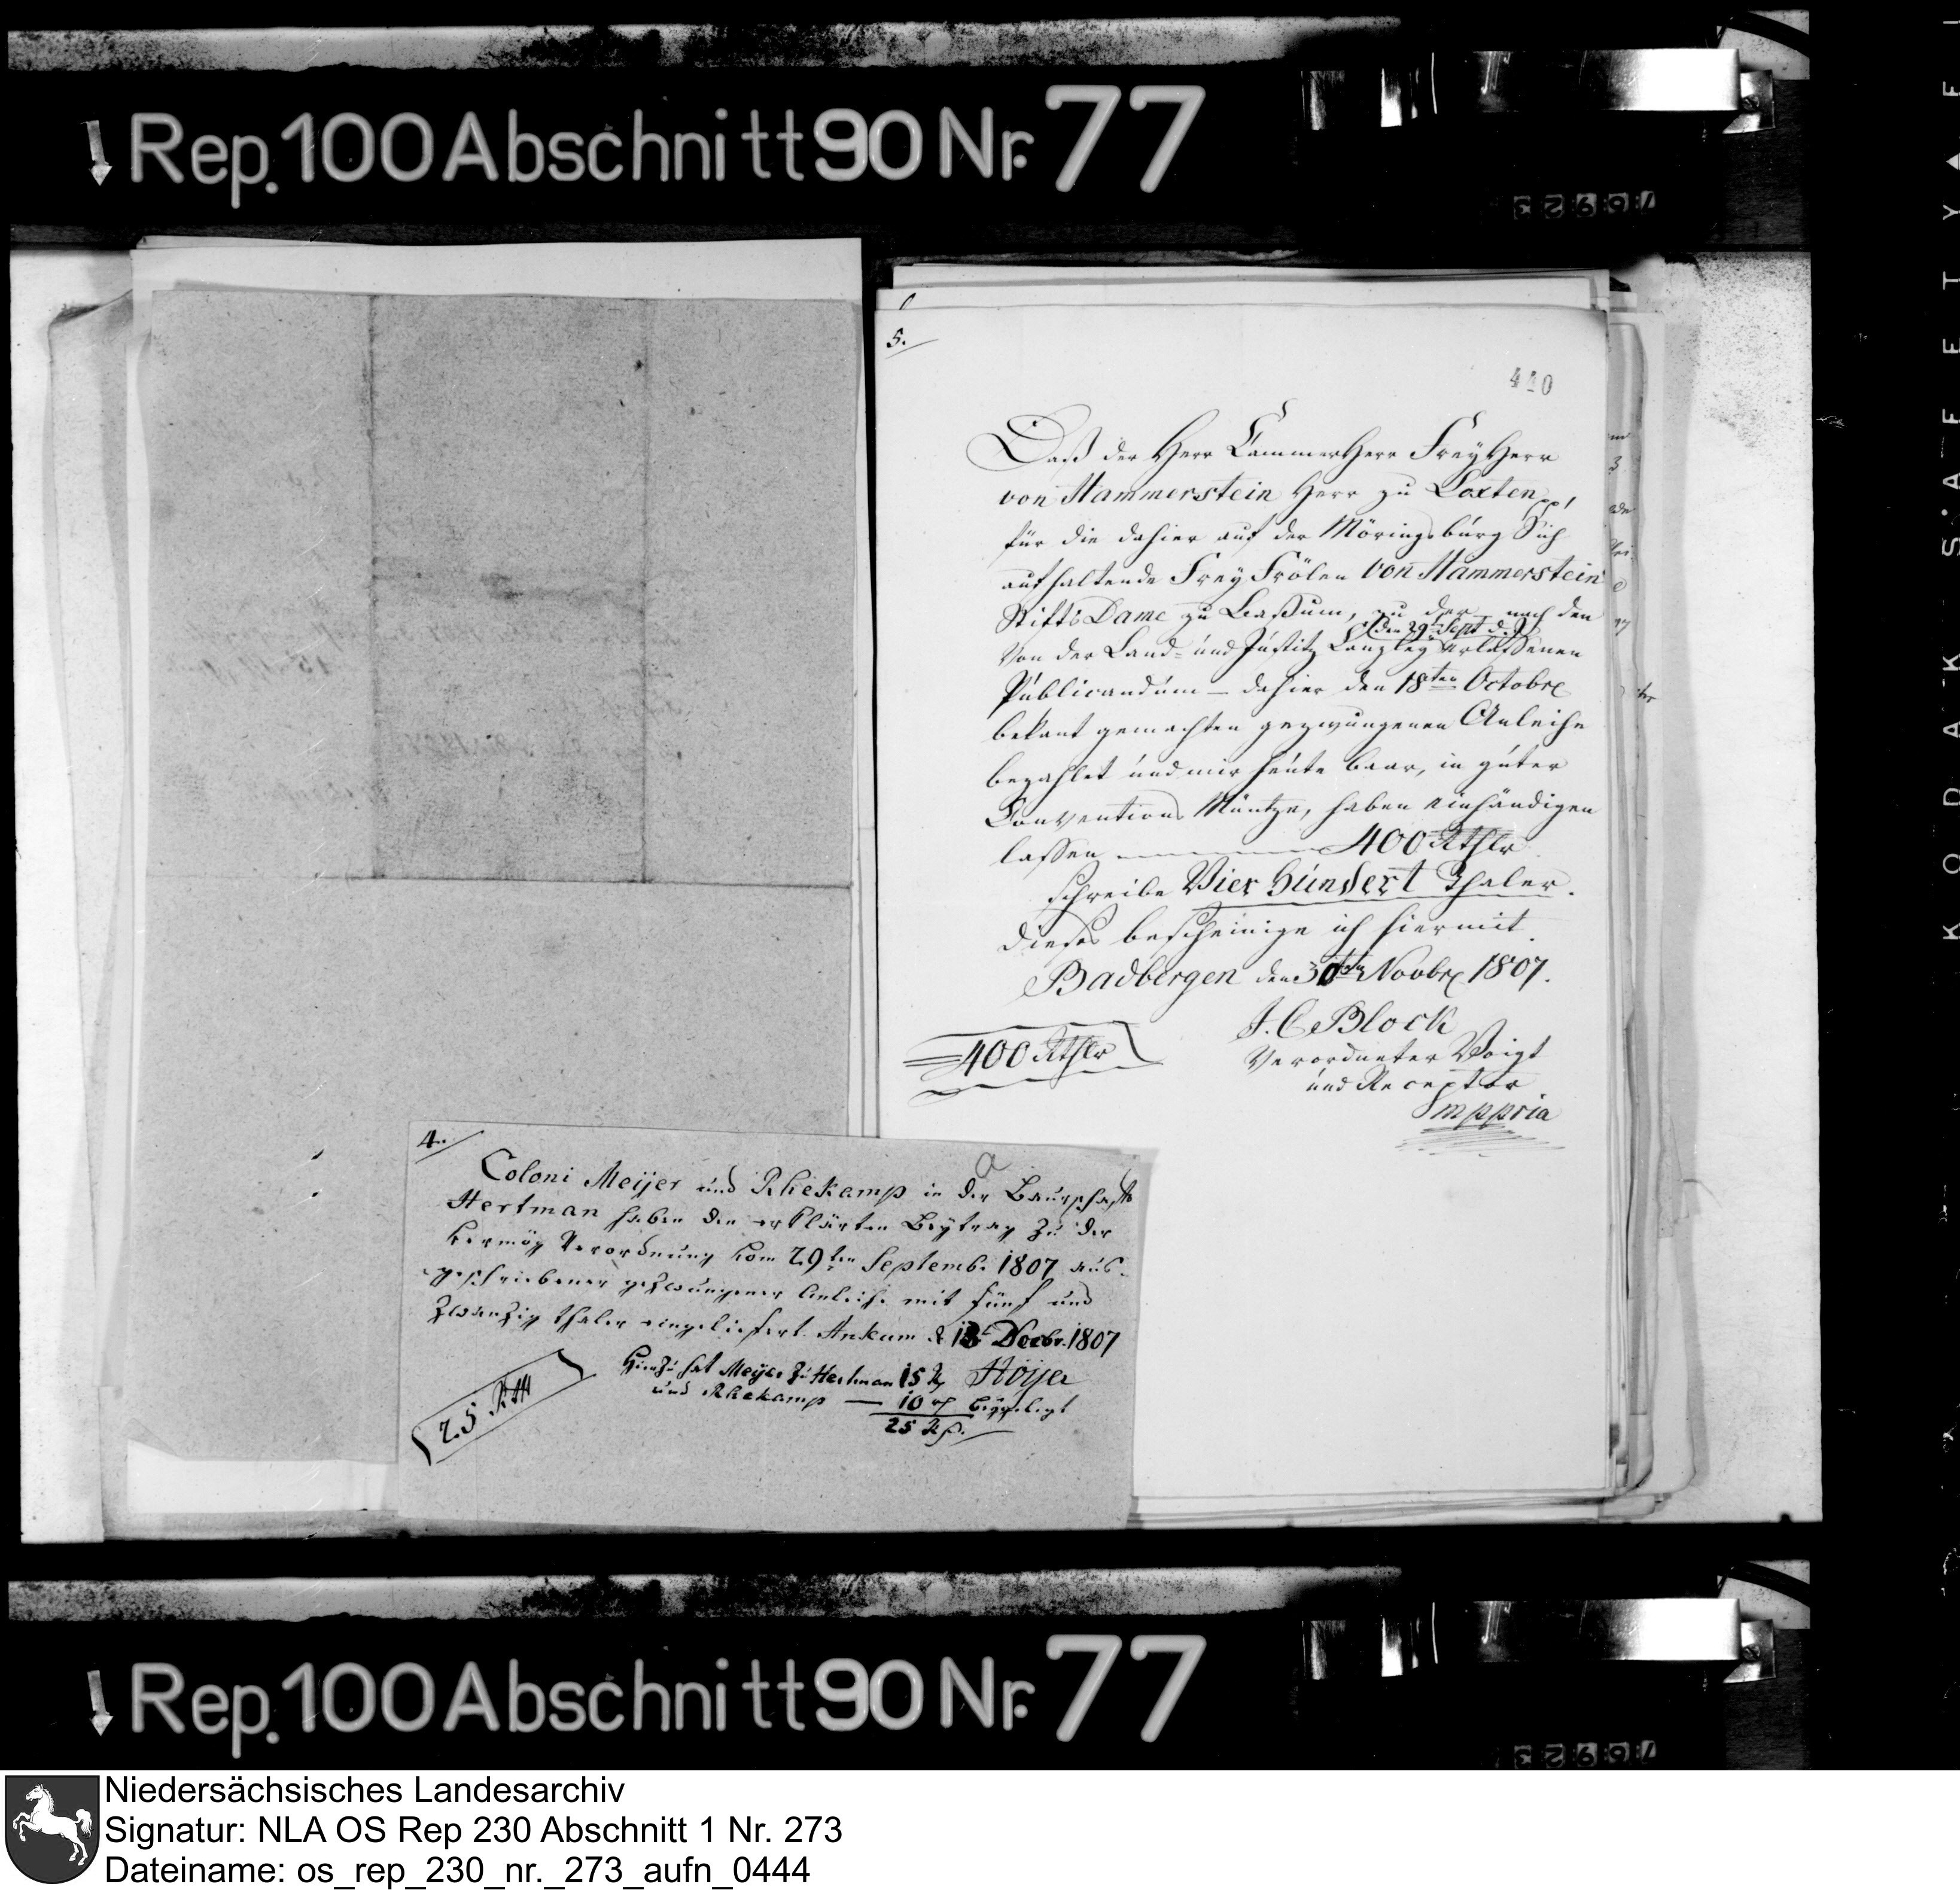 Rep. 100 Abschnitt 90 Nr. 77
5.
410
Daß der Herr CammerHerr FreyHerr
von Hammerstein Herr zu Loxten pp,
für die dahier auf der Möringsburg Sich
aufhaltende FreyFrölen von Hammerstein
StiftsDame zu Baßum, zu der nach den
(den 29t Sept d. J)
von der Land- und Justitz Canzley erlassenen
Publicandum — dahier den 18ten Octobre
bekant gemachten gezwungenen Anleihe
bezahlet und mir heute baar, in guter
Conventions Müntze, haben einhändigen
lassen 400 Rthlr
schreibe Vier Hundert Thaler.
dieses bescheinige ich hiermit
Badbergen den 30ten Novbre 1807.
J. C. Block
Verordneter Voigt
und Receptor
mppria
400 Rthlr
4.
a
Coloni Meijer und Rhekamp in der Baurschaft
Hertman haben den erklärten Beytrag zu der
vermög Verordnung vom 29ten Septemb. 1807 aus-
geschriebener gezwungener Anleihe mit fünf und
zwanzig thaler eingeliefert. Ankum d 18t Decbr. 1807
Hiezu hat Meijer zu Hertman 15 Höijer
und Rhekamp — 10 beygelegt
25
25 Rth
Rep. 100 Abschnitt 90 Nr. 77
KODAK SAFETY
Niedersächsisches Landesarchiv
Signatur: NLA OS Rep 230 Abschnitt 1 Nr. 273
Dateiname: os_rep_230_nr._273_aufn_0444